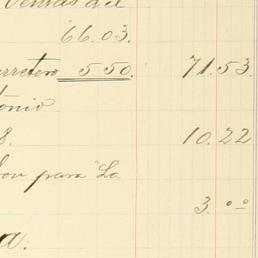 Ventas del
66.03.
5 50. 71.53
tonio
8. 10.22
para La
3. 00
a.